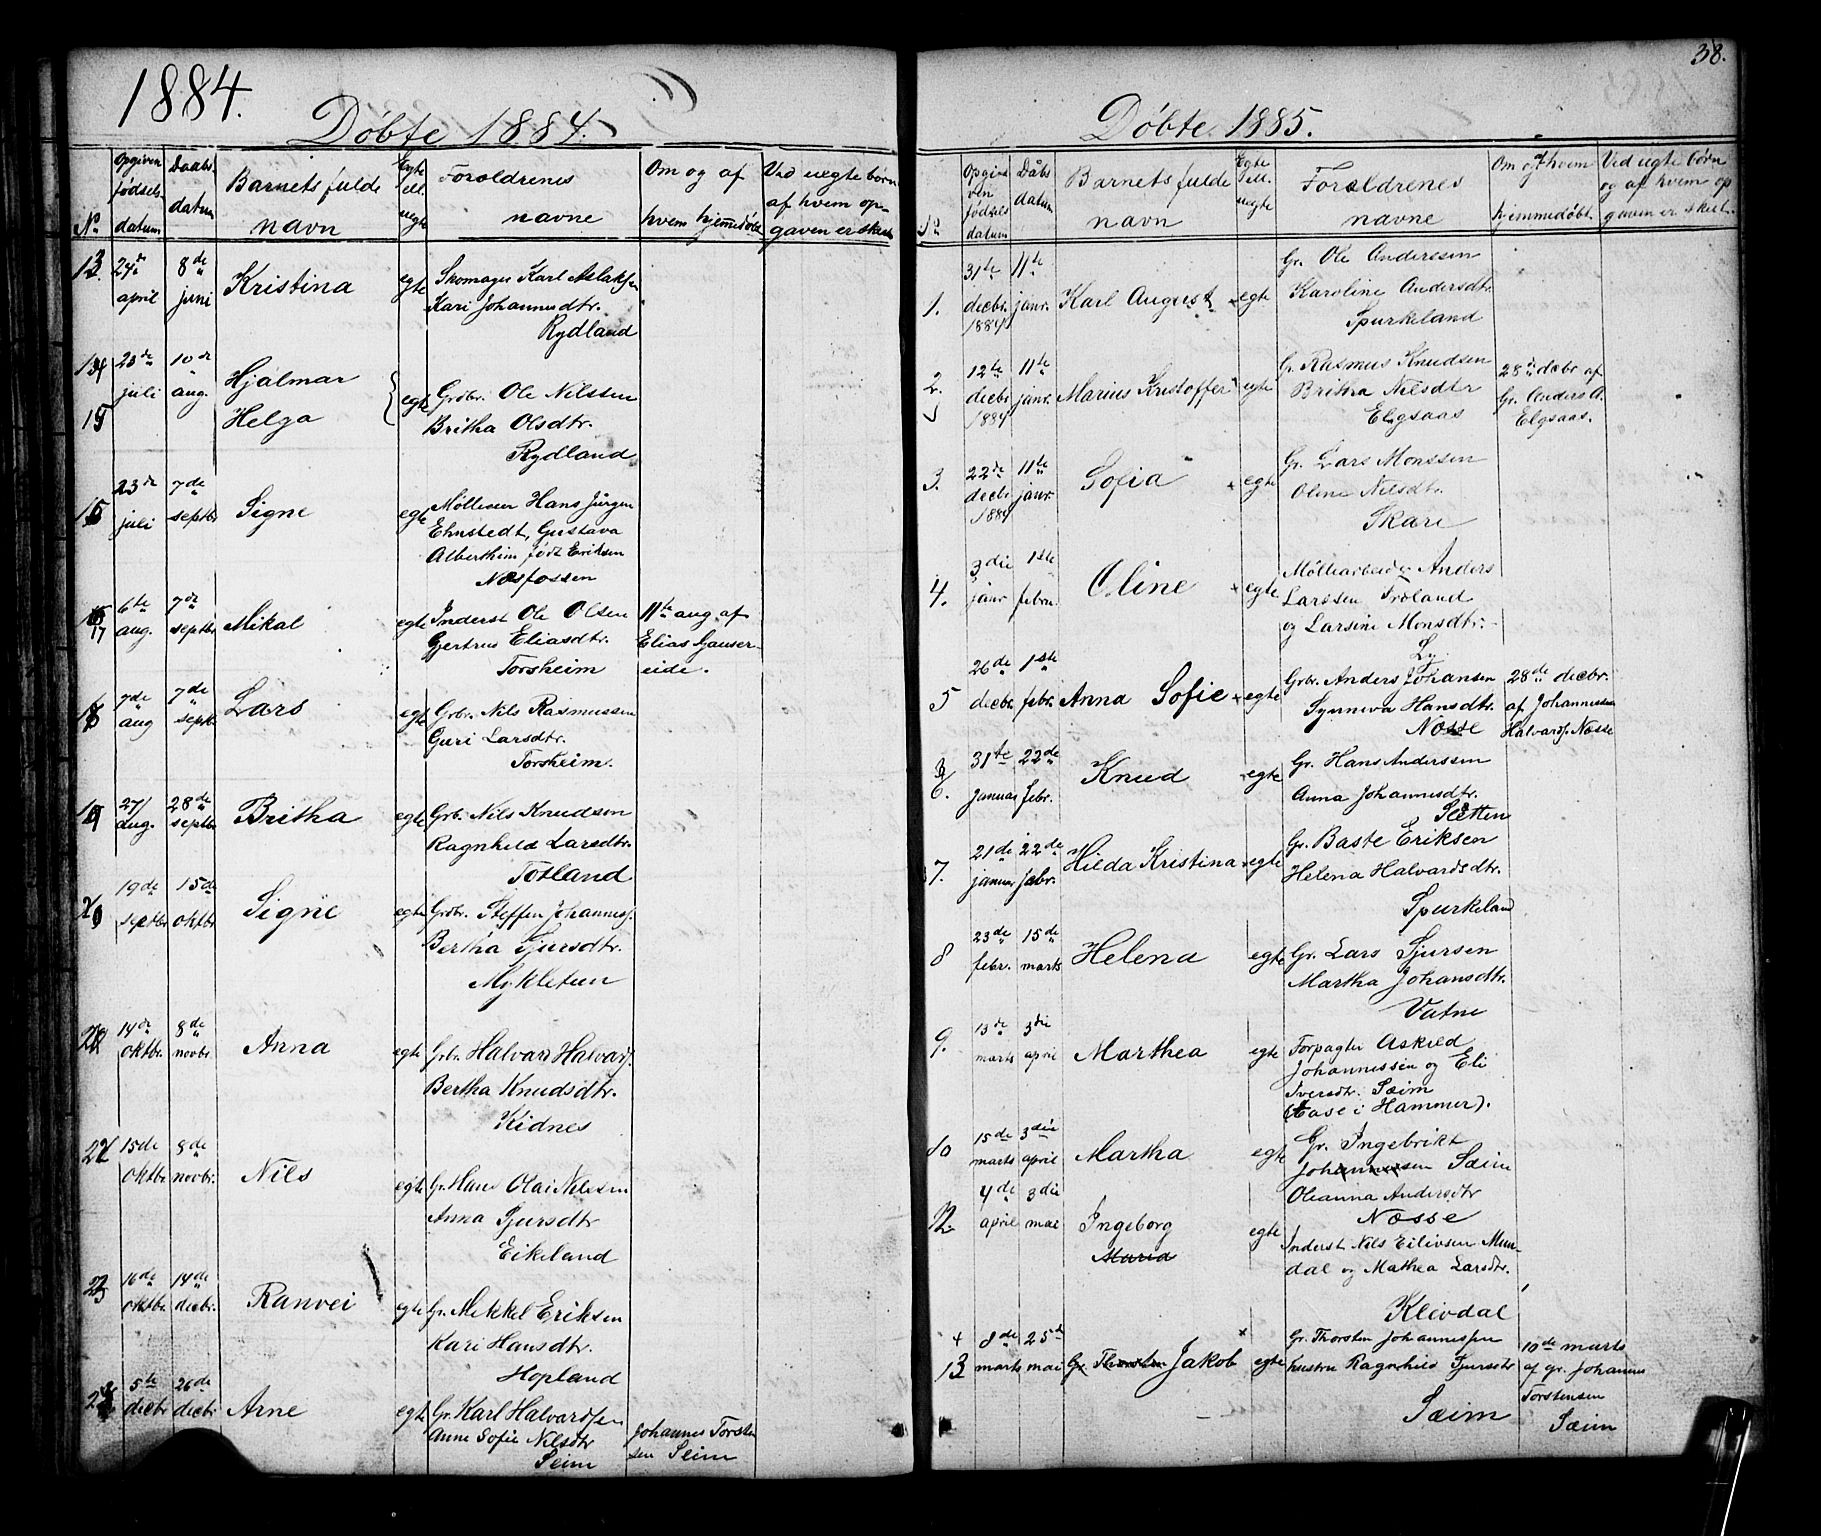 1884.
Døbte 1884.
No
Opgiven fødsels datum
Daabs datum
Barnets fulde navn
Egte ell. uegte
Forældrenes navne
Om og af hvem hjemmedøbt
Ved uegte børn af hvem opgaven er skeet
13 24de april 8de juni Kristina egte Skomager Karl Aslaksen
Kari Johannesdtr.
Rydland
14 23de juli 10de aug. Hjalmar egte Grdbr. Ole Nilssen
15 Helga Britha Olsdtr.
Rydland
16 23de juli 7de septbr Signe egte Møllesver Hans Jürgen
Ehnstedt, Gustava
Alberthine født Eriksen
Næsfossen
17 6te aug. 7de septbr Mikal egte Inderst Ole Olsen 11te aug. af
Gjertrus Eliasdtr. Elias Gjauser-
Torsheim eide.
18 7de aug 7de septbr. Lars egte Grbr. Nils Rasmussen
Guri Larsdtr.
Torsheim.
19 27/ aug. 28de septbr Britha egte Grbr. Nils Knudsen
Ragnhild Larsdtr.
Totland
20 19de septbr 15de oktbr Signe egte Grdbr. Steffen Johannesf.
Bertha Sjursdtr.
Mykletun
21 14de oktbr. 8de novbr. Anna egte Grbr. Halvard Halvardf.
Bertha Knudsdtr.
Kidnes
22 15de oktbr. 8de novbr. Nils egte Gr. Hans Olai Nilssen
Anna Sjursdtr
Eikeland
23 16de oktbr. 14de decbr. Ranvei egte Gr. Mikkel Eriksen
Kari Hansdtr.
Hopland
24 5te decbr 26de decbr Arne egte Gr. Karl Halvardsen Johannes Torsten
Anne Sofie Nilsdtr sen Seim
Seim
38.
Døbte 1885.
No
Opgiven fødsels datum
Dåbs datum
Barnets fulde navn
Egte ell. uegte
Forældrenes navne
Om og af hvem hjemmedøbt.
Ved uegte børn og af hvem opgaven er skeet.
1. 31te decbr. 1884 11te janr. Karl August egte Gr. Ole Anderssen
Karoline Andersdtr.
Spurkeland
2. 12te decbr 1884 11te janr. Marius Kristoffer egte Gr. Rasmus Knudsen 28de decbr af
Britha Nilsdtr Gr. Anders A.
Elgsaas Elgsaas.
3. 22de decbr. 1884 11te janr. Sofia egte Gr. Lars Monssen
Oline Nilsdtr.
Skare
4. 3die janr 1ste febru. Oline egte Møllearbeider Anders
Larssen Troland
og Larsine Monsdtr.
Ly.
5 26de decbr. 1ste febr. Anna Sofie egte Grbr. Anders Johansen 28de decbr.
Synneva Hansdtr. af Johannessen
Næsse Halvardf. Næsse
6. 31te januar 22de febr. Knud egte Gr. Hans Anderssen
Anna Johannesdtr.
Sletten
7. 21de januar 22de febr. Hilda Kristina egte Gr. Baste Eriksen
Helena Halvardsdtr.
Spurkeland
8 23de febr. 15de marts Helena egte Gr. Lars Sjursen
Martha Johansdtr.
Vatne
9. 13de marts 3die april Marthea egte Forpagter Askild
Johannessen og Eli
Iversdtr. Sæim
(Aase i Hammer).
10 15de marts 3die april Martha egte Gr. Ingebrikt
Johannessen Sæim
Olianna Andersdtr
Næsse
12. 4de april 3die mai Ingeborg egte Inderst Nils Eilivsen Mun-
Maria dal og Mathea Larsdtr.
Kleivdal
13 8de marts 25de mai Gr. Thorsten Jakob egte Gr. Thorsten Johannessen 10de marts
hustru Ragnhild Sjursdtr af gr. Johannes
Sæim Torstensen
Sæim